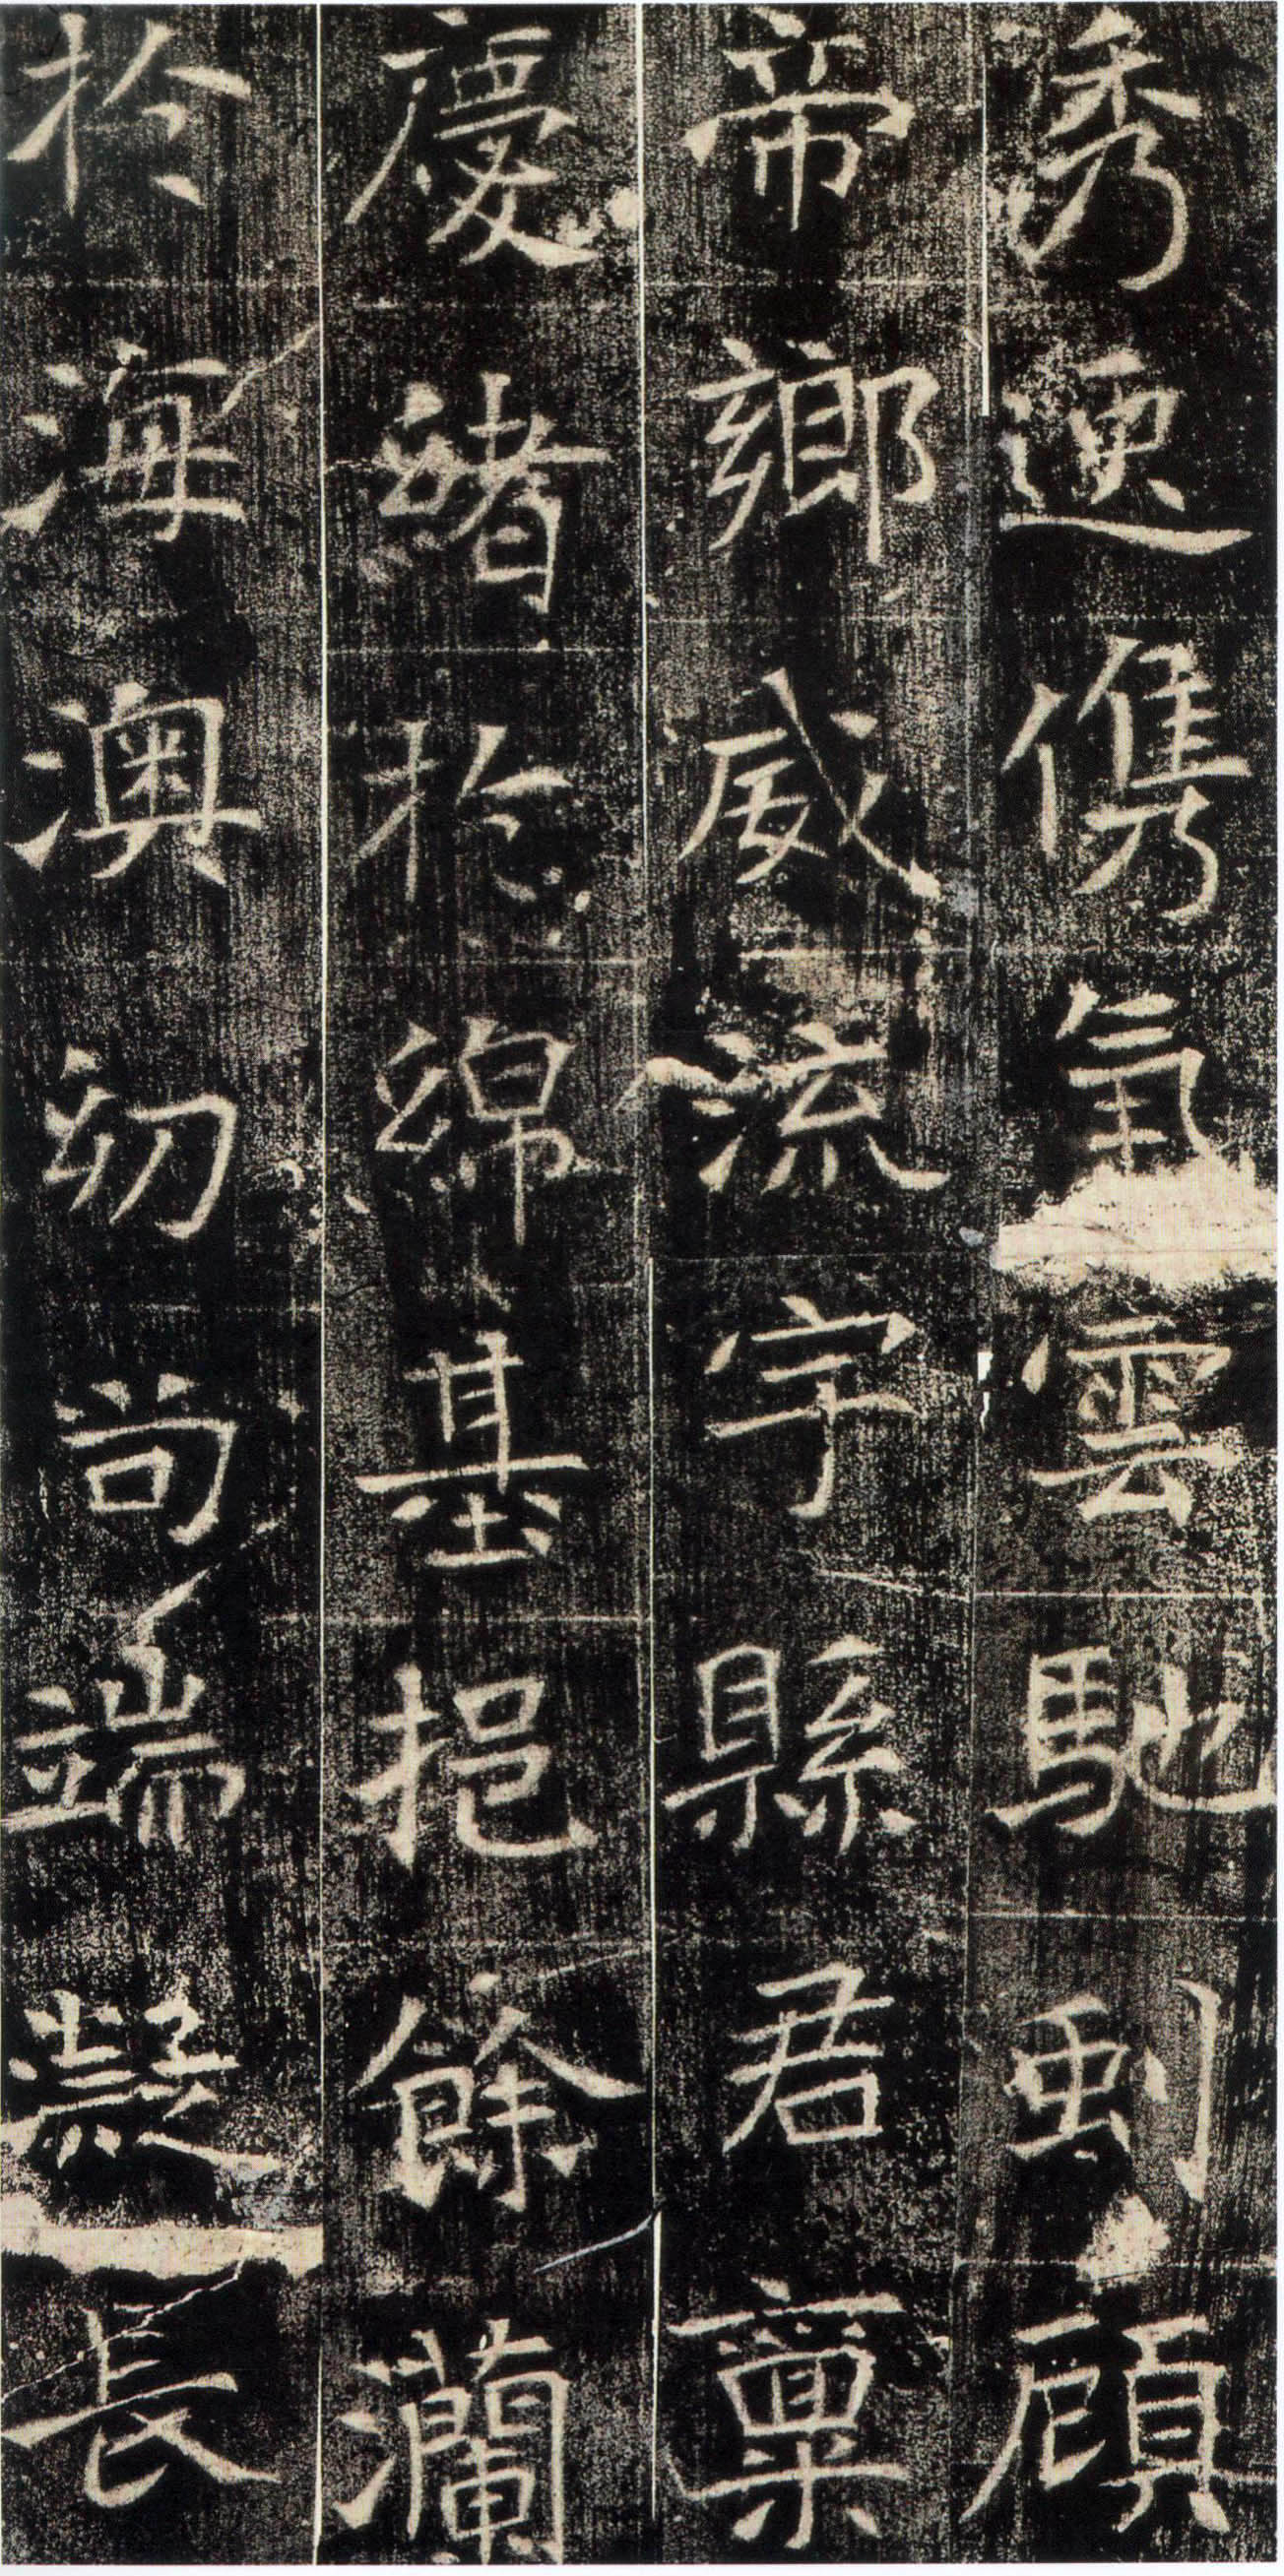 秀儁氣雲馳虬顧
帝鄉威流宇縣君稟
慶緒於綿基挹餘瀾
於海澳幼尚端凝長